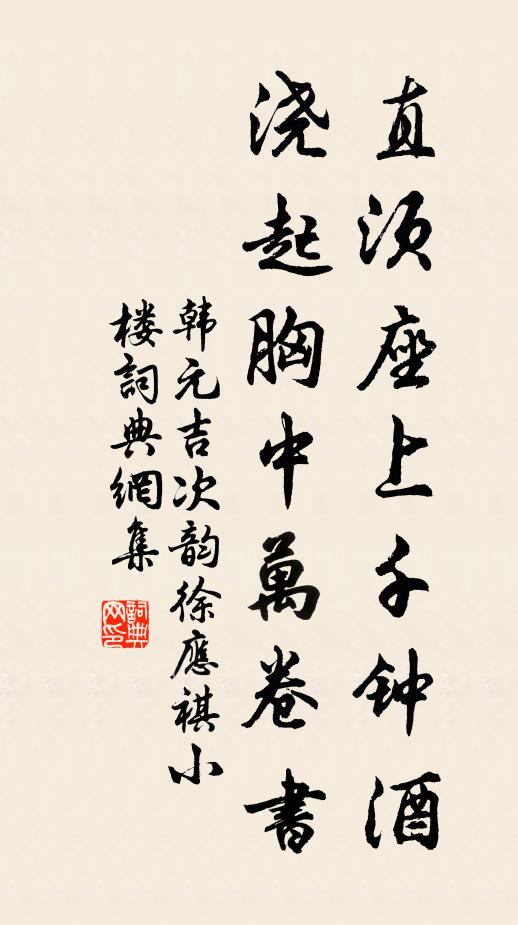 直须座上千钟酒
浇起胸中萬卷書
韩元吉次韵徐應祺小
楼詞典網集
詞典网印